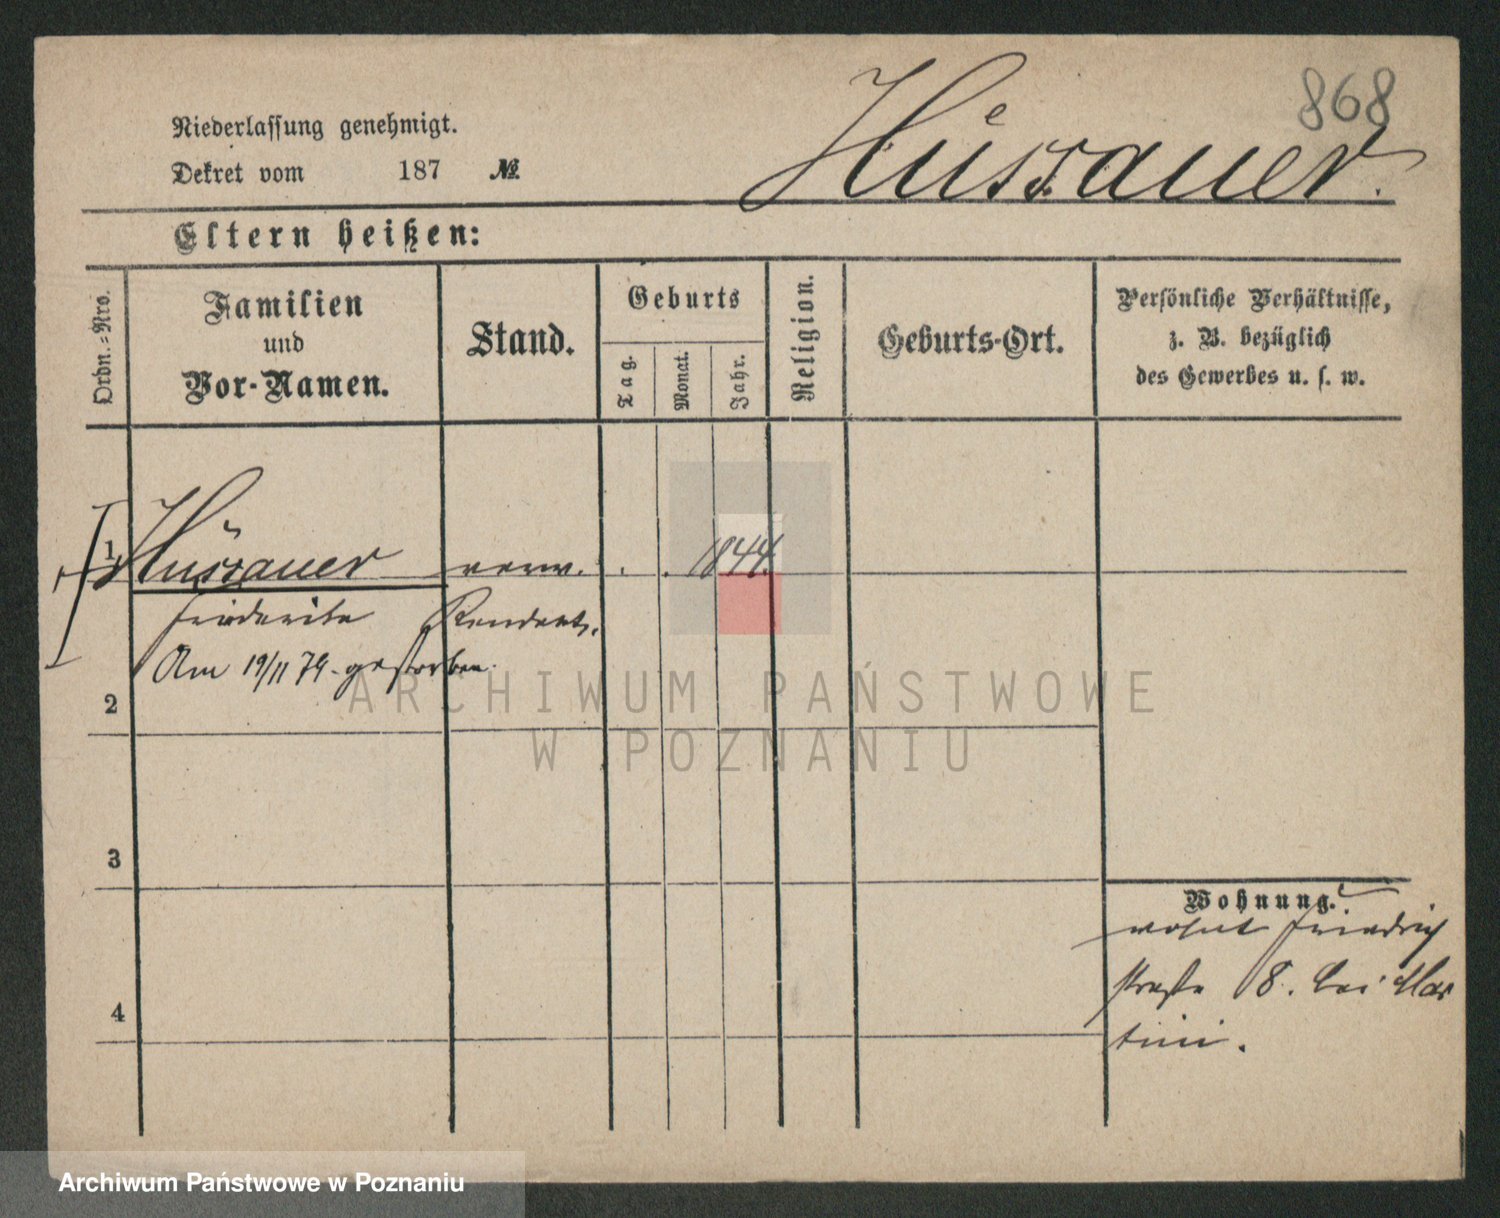 868
Hüssauer.
Niederlassung genehmigt.
Dekret vom 187 №
Eltern heißen:
Ordn.=Nro.
Familien
und
Vor-Namen.
Stand.
Geburts
Tag.
Monat.
Jahr.
Religion.
Geburts-Ort.
Persönliche Verhältnisse,
z. B. bezüglich
des Gewerbes u. s. w.
1 Hüssauer verw. . . 1844.
Friederike Rendant.
Am 19/11 74 gestorben.
2
3
4
Wohnung.
wohnt Friedrich
straße 8. bei Mar
tini.
ARCHIWUM PAŃSTWOWE
W POZNANIU
Archiwum Państwowe w Poznaniu